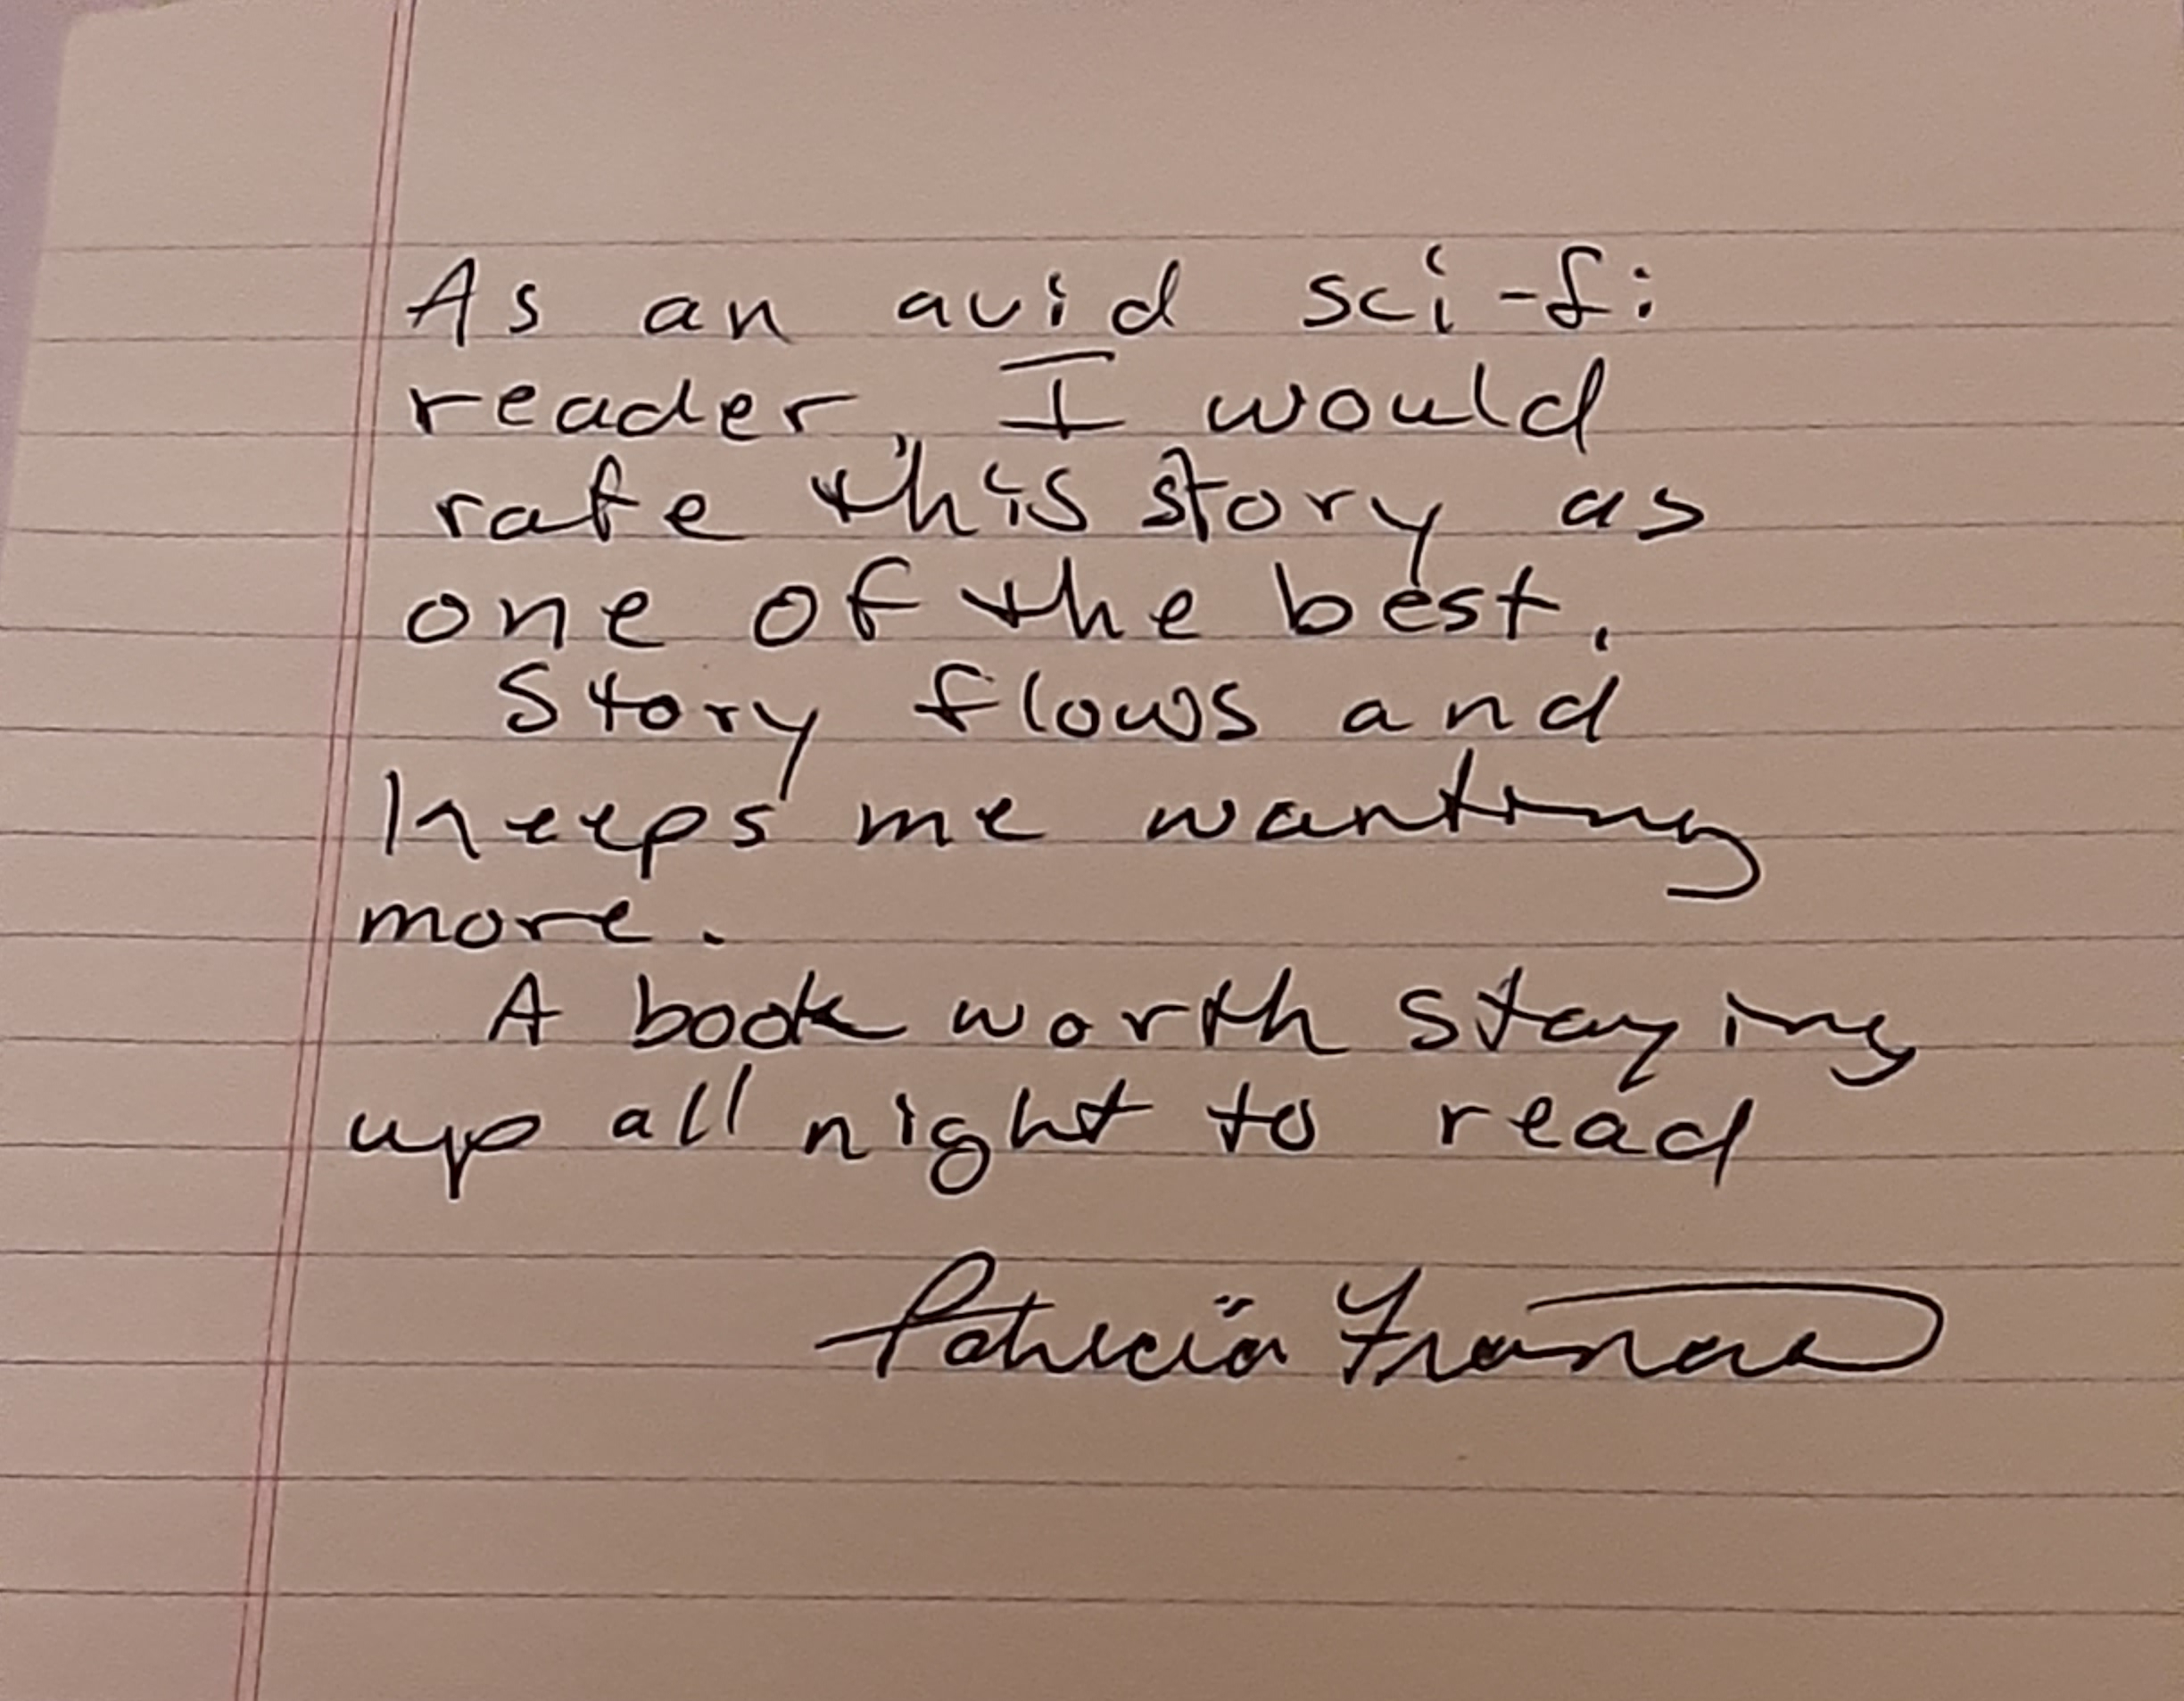 As an avid sci-fi
reader, I would
rate this story as
one of the best.
Story flows and
keeps me wanting
more.
A book worth staying
up all night to read
Patricia